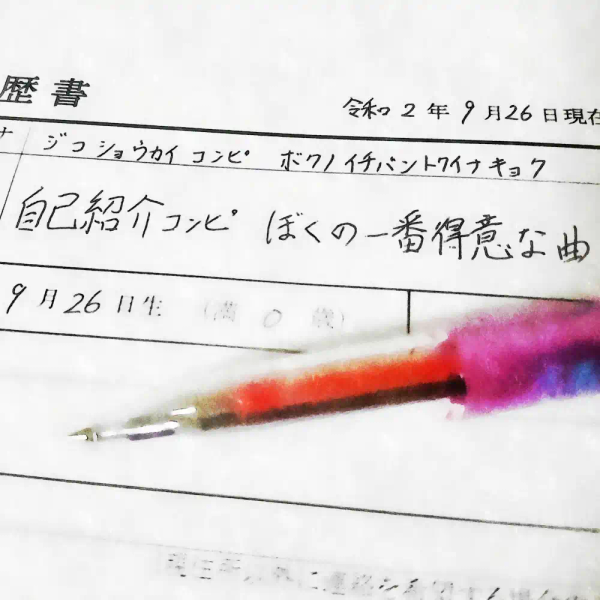 歴書
令和 2 年 9 月 26 日現在
ナ ジコ ショウカイ コンピ ボクノイチバントクイナキョク
自己紹介コンピ ぼくの一番得意な曲
9 月 26 日生 (満 0 歳)